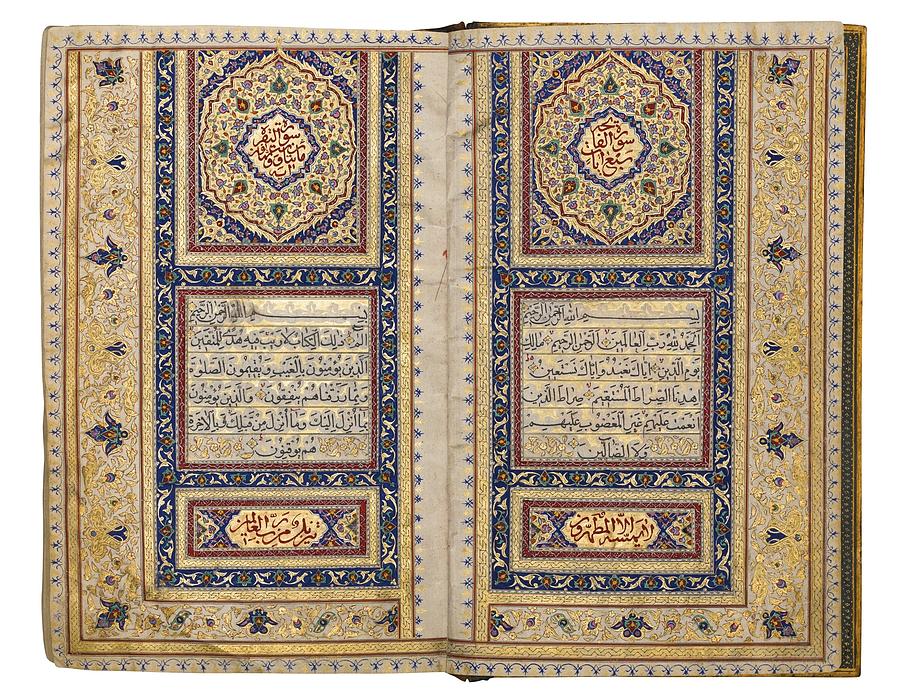 سورة الفاتحة
سبع آيات
بسم الله الرحمن الرحيم
الحمد لله رب العالمين الرحمن الرحيم مالك
يوم الدين اياك نعبد واياك نستعين
اهدنا الصراط المستقيم صراط الذين
انعمت عليهم غير المغضوب عليهم
ولا الضالين
لا يمسه الا المطهرون
سورة البقرة
بسم الله الرحمن الرحيم
الم ذلك الكتاب لا ريب فيه هدى للمتقين
الذين يومنون بالغيب ويقيمون الصلوة
ومما رزقناهم ينفقون والذين يومنون
بما انزل اليك وما انزل من قبلك وبالاخرة
هم يوقنون
تنزيل من رب العالمين